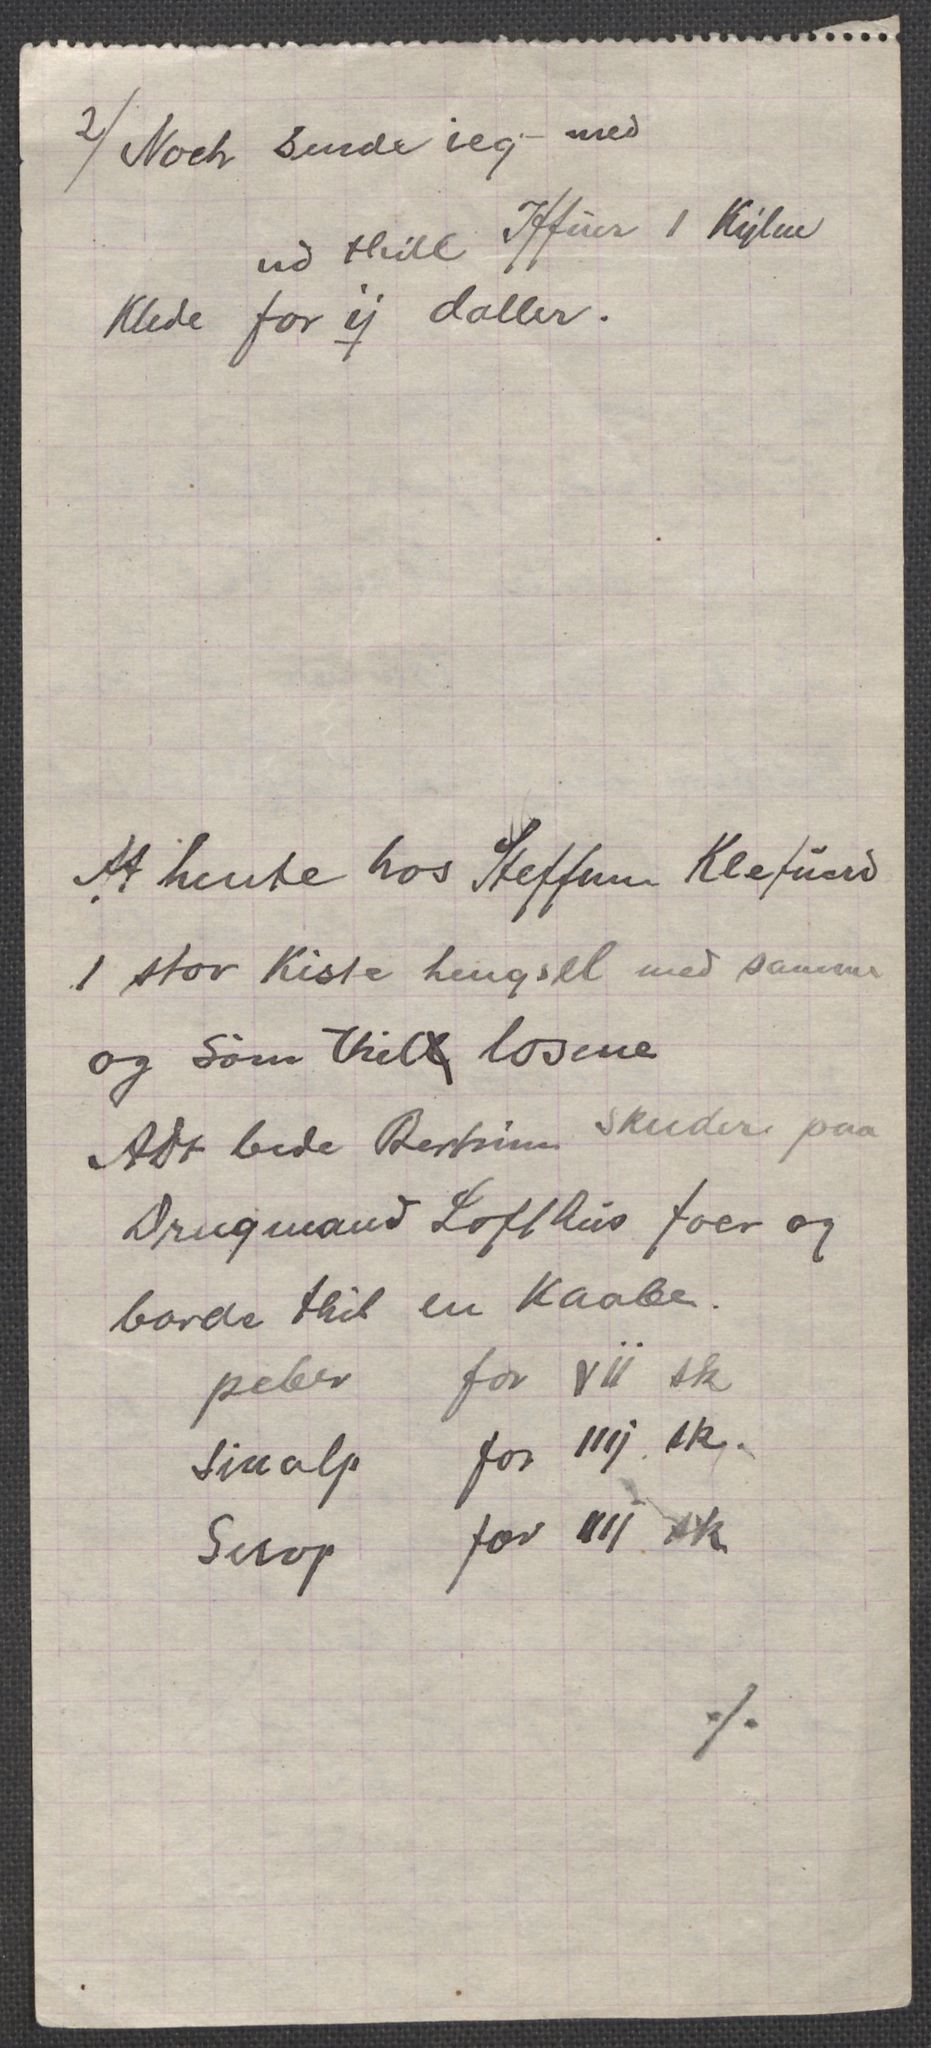 2/ Noch sende ieg med
ud thill Iffuer 1 Kijlne
Klede for ij daller.
At hente hos Steffuen Klefuerd
1 stor Kiste hengsell med samme
og Söm thill losene
Adt bede skuder paa
Drugmand Lofthus foer og
borde thil en Kaabe.
peber for vii sk
sinalp for iiij sk.
Serop for iiij sk
./.